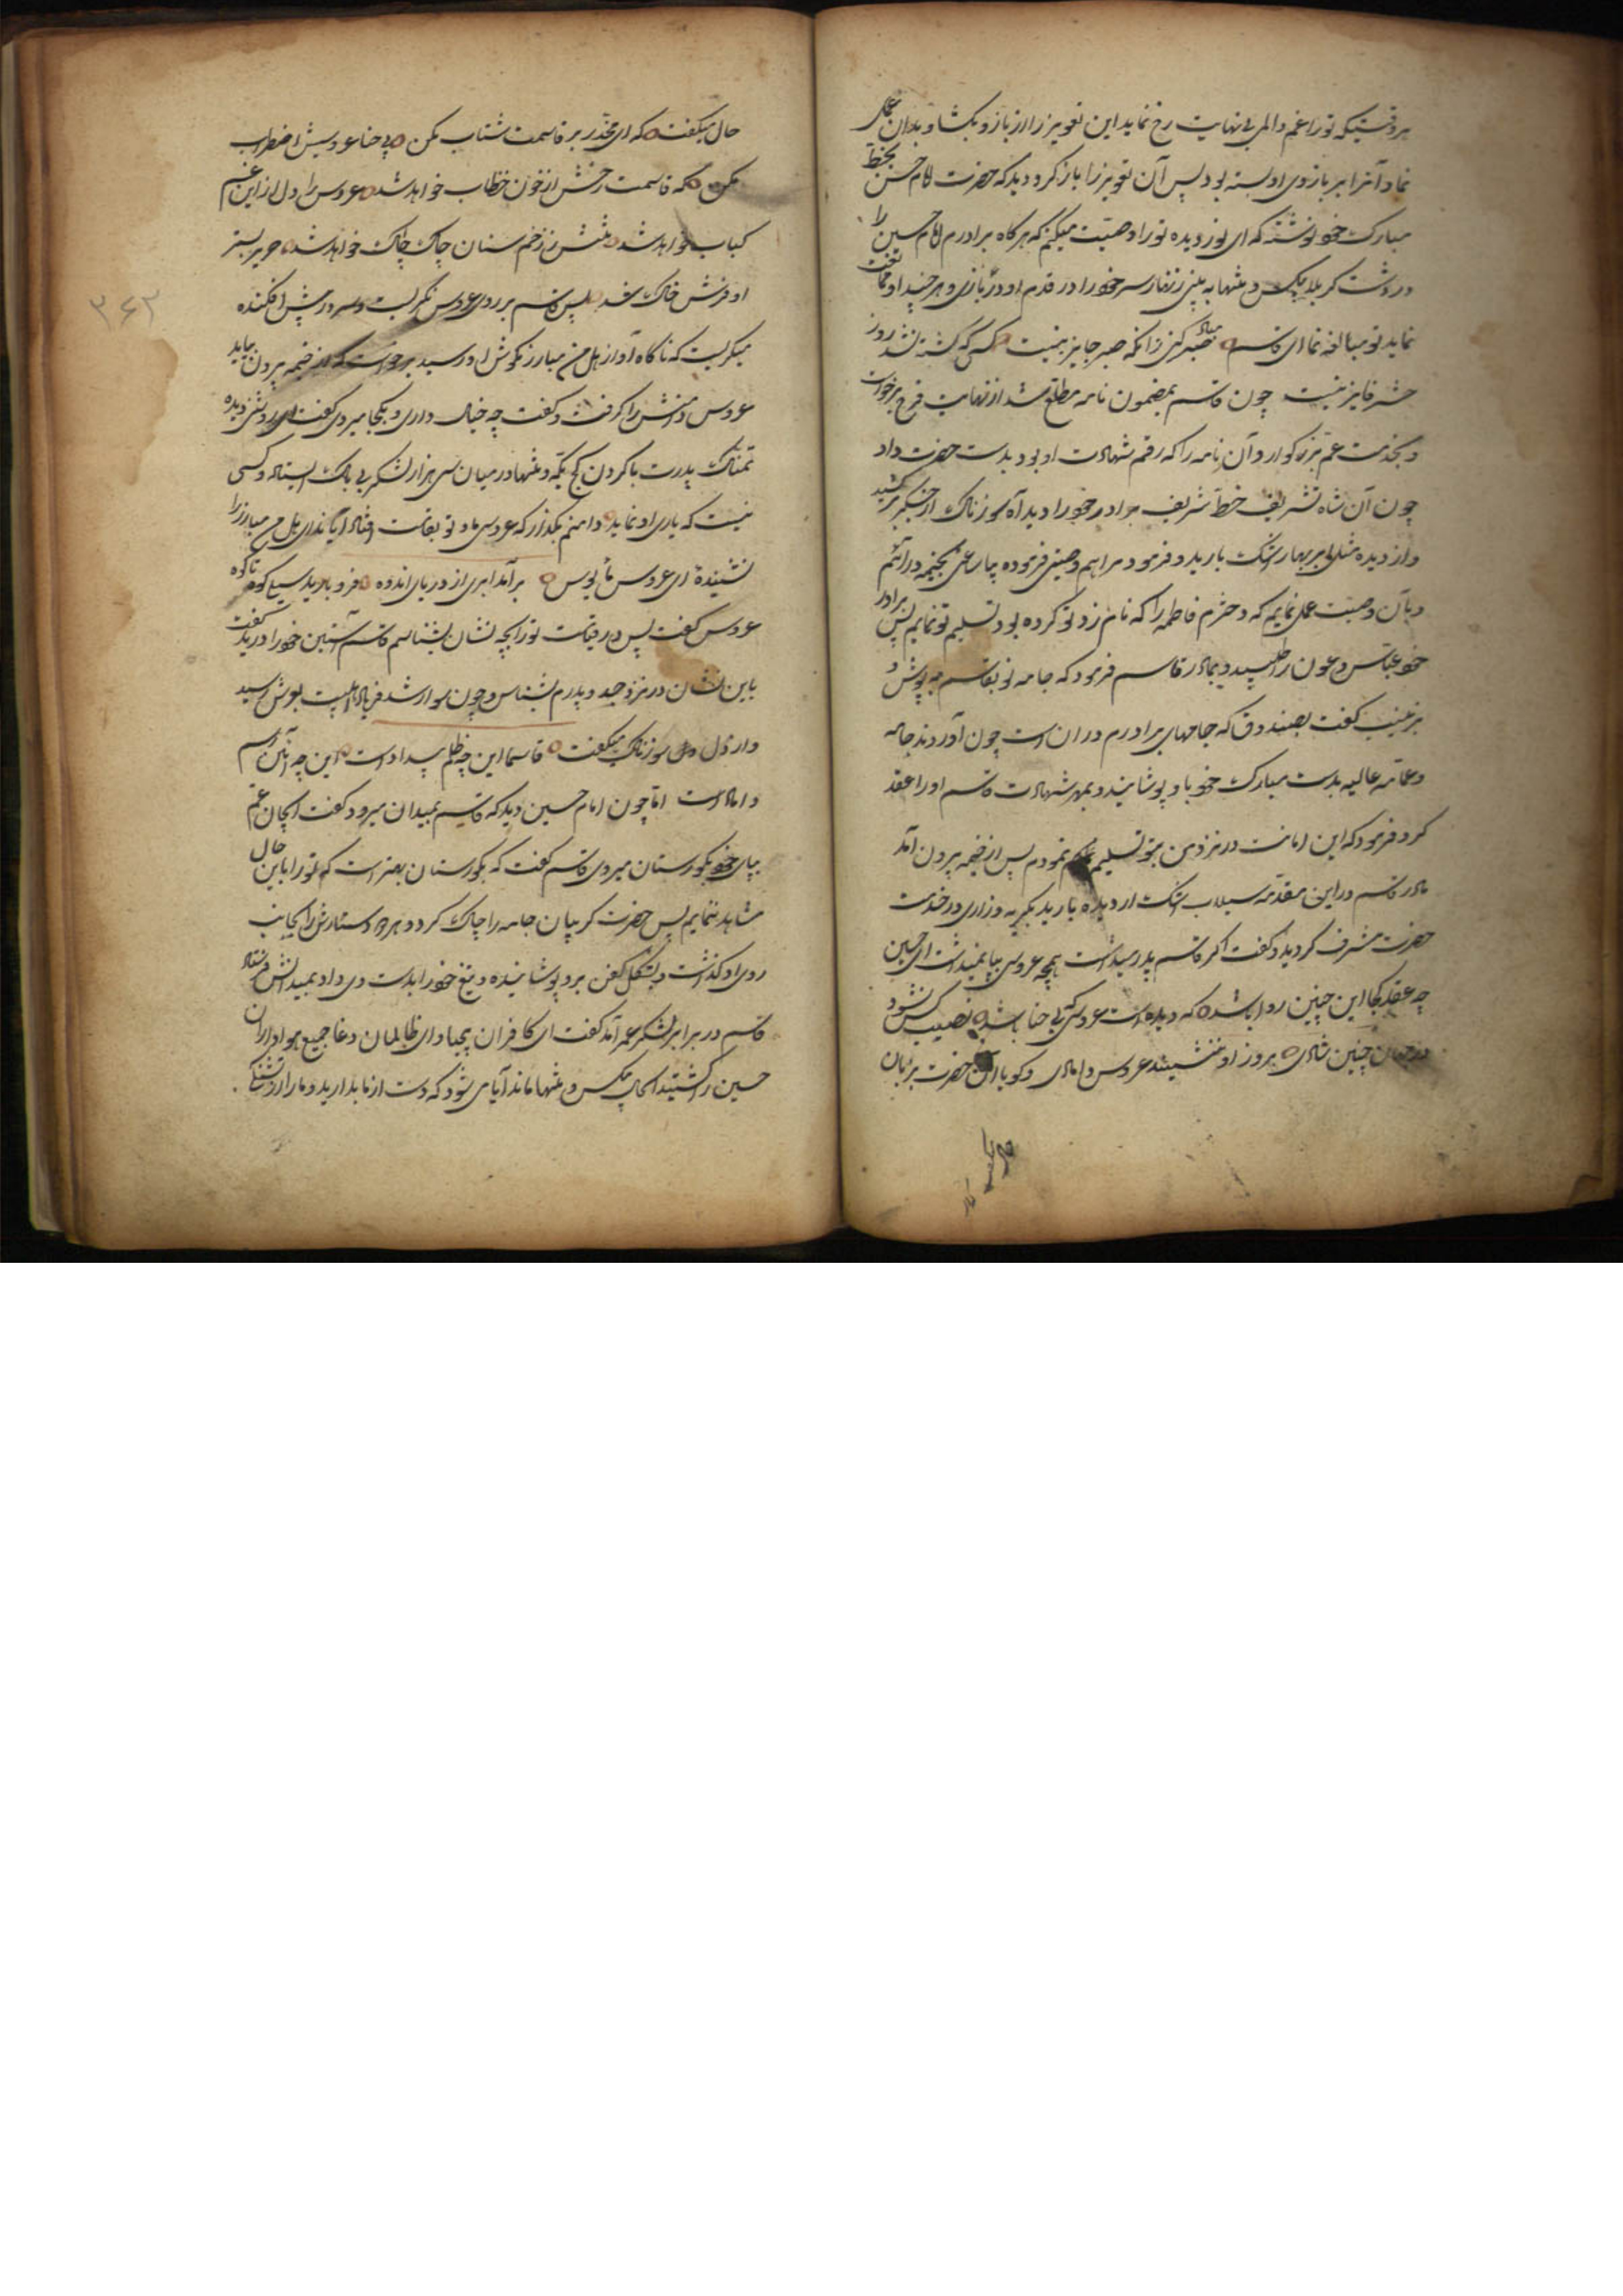 هر وقتیکه تو را غم و الم بی نهایت رخ نماید این تعویز را از بازو بکشا و بدان عمل
نما و آنرا بر بازوی او بسته بود پس آن تعویز را باز کرد و دید که حضرت امام حسن بخط
مبارک خود نوشته که ای نور دیده تو را وصیت میکنم که هر کاه برادرم امام حسین را
در دشت کربلا بیکس و تنها به بینی زنهار سر خود را در قدم او در بازی و هر چند او ممانعت
نماید تو مبالغه نما ای قاسم مبادا صبر کنی زانکه صبر جایز نیست کسی که کشته نشد روز
حشر فایز نیست چون قاسم بمضمون نامه مطلع شد از نهایت فرح برخواست
و بخدمت عم بزرکوار و آن نامه را که رقم شهادت او بود بدست حضرت داد
چون آن شاه تشریف خط شریف برادر خود را دید آه سوزناک از جکر برکشید
و از دیده مثل ابر بهار اشک بارید و فرمود مرا هم وصیتی فرموده بیا ساعتی بخیمه در آئیم
و بآن وصیت عمل نمایم که دخترم فاطمه را که نام زد تو کرده بود تسلیم تو نمایم پس برادر
خود عباس و عون را طلبید و بمادر قاسم فرمود که جامه نو بقاسم بپوش و
بزینب کفت بصندوق که جامهای برادرم در ان است چون آوردند جامه
و عمامه عالیه بدست مبارک خود باو پوشانید و بمهر شهادت قاسم او را عقد
کرد و فرمود که این امانت در نزد من بتو تسلیم نمودم پس از خیمه بیرون آمد
مادر قاسم در این مقدمه سیلاب اشک از دیده بارید بکریه و زاری در خدمت
حضرت مشرف کردید و کفت اکر قاسم پدر میداشت بچه عروسی بپا نمیداشت ای حسین
چه عقد کجا این چنین روا باشد که دیده است عروسی که بی حنا باشد نصیب کس نشود
در جهان چنین شادی بروز او ننشیند عروس و دامادی و کویا آن حضرت بزبان
حال میکفت که ای مخدر بر قاسمت شتاب مکن بی حنا عروسیش اضطراب
مکن که قاسمت رخش از خون خظاب خواهد شد عروس را دل از این غم
کباب خواهد شد تنش ز زخم سنان چاک چاک خواهد شد حریر بستر
او فرش خاک شد پس قاسم بر روی عروس نکریست و سر در پیش افکنده
میکریست که ناکاه آواز هل من مبارز بکوش او رسید برخواست که از خیمه بیرون بیاید
عروس دامنش را کرفت و کفت چه خیال داری و بکجا میروی کفت ای روشنی دیده
نمناک پدرت با کردن کج یکه و تنها در میان سی هزار لشکر بی باک ایستاده و کسی
نیست که یاری او نماید دامنم بکذار که عروسی ما و تو بقیامت افتاد آیا ندای هل من مبارز را
نشنیده ای عروس مأیوس برآمد ابری از دریای اندوه فرو بارید سیل کوه تا کوه
عروس کفت پس در قیامت تو را بچه نشان بشناسم قاسم آستین خود را درید کفت
باین نشان در نزد جد و پدرم بشناس و چون سوار شد فریاد اهلبیت بعرش رسید
و از دل سوزناک میکفت قاسما این چه ظلم بیداد است این چه آئین رسم
داماد است اما چون امام حسین دید که قاسم بمیدان میرود کفت ایجان عم
بپای خود بکورستان میروی قاسم کفت که بکورستان بهتر است که تو را باین حال
مشاهد ننمایم پس حضرت کریبان جامه را چاک کرد و هر دو دستارش را بجانب
روی او کذاشت و بشکل کفن بر او پوشانیده و تیغ خود را بدست وی داد بمیدانش فرستاد
قاسم در برابر لشکر عمر آمد کفت ای کافران بیحیا و ای ظالمان دغا جمیع هواداران
حسین را کشتید الحال بیکس و تنها ماند آیا می شود که دست از ما بدارید و ما را از تشنکی
۳۶۲